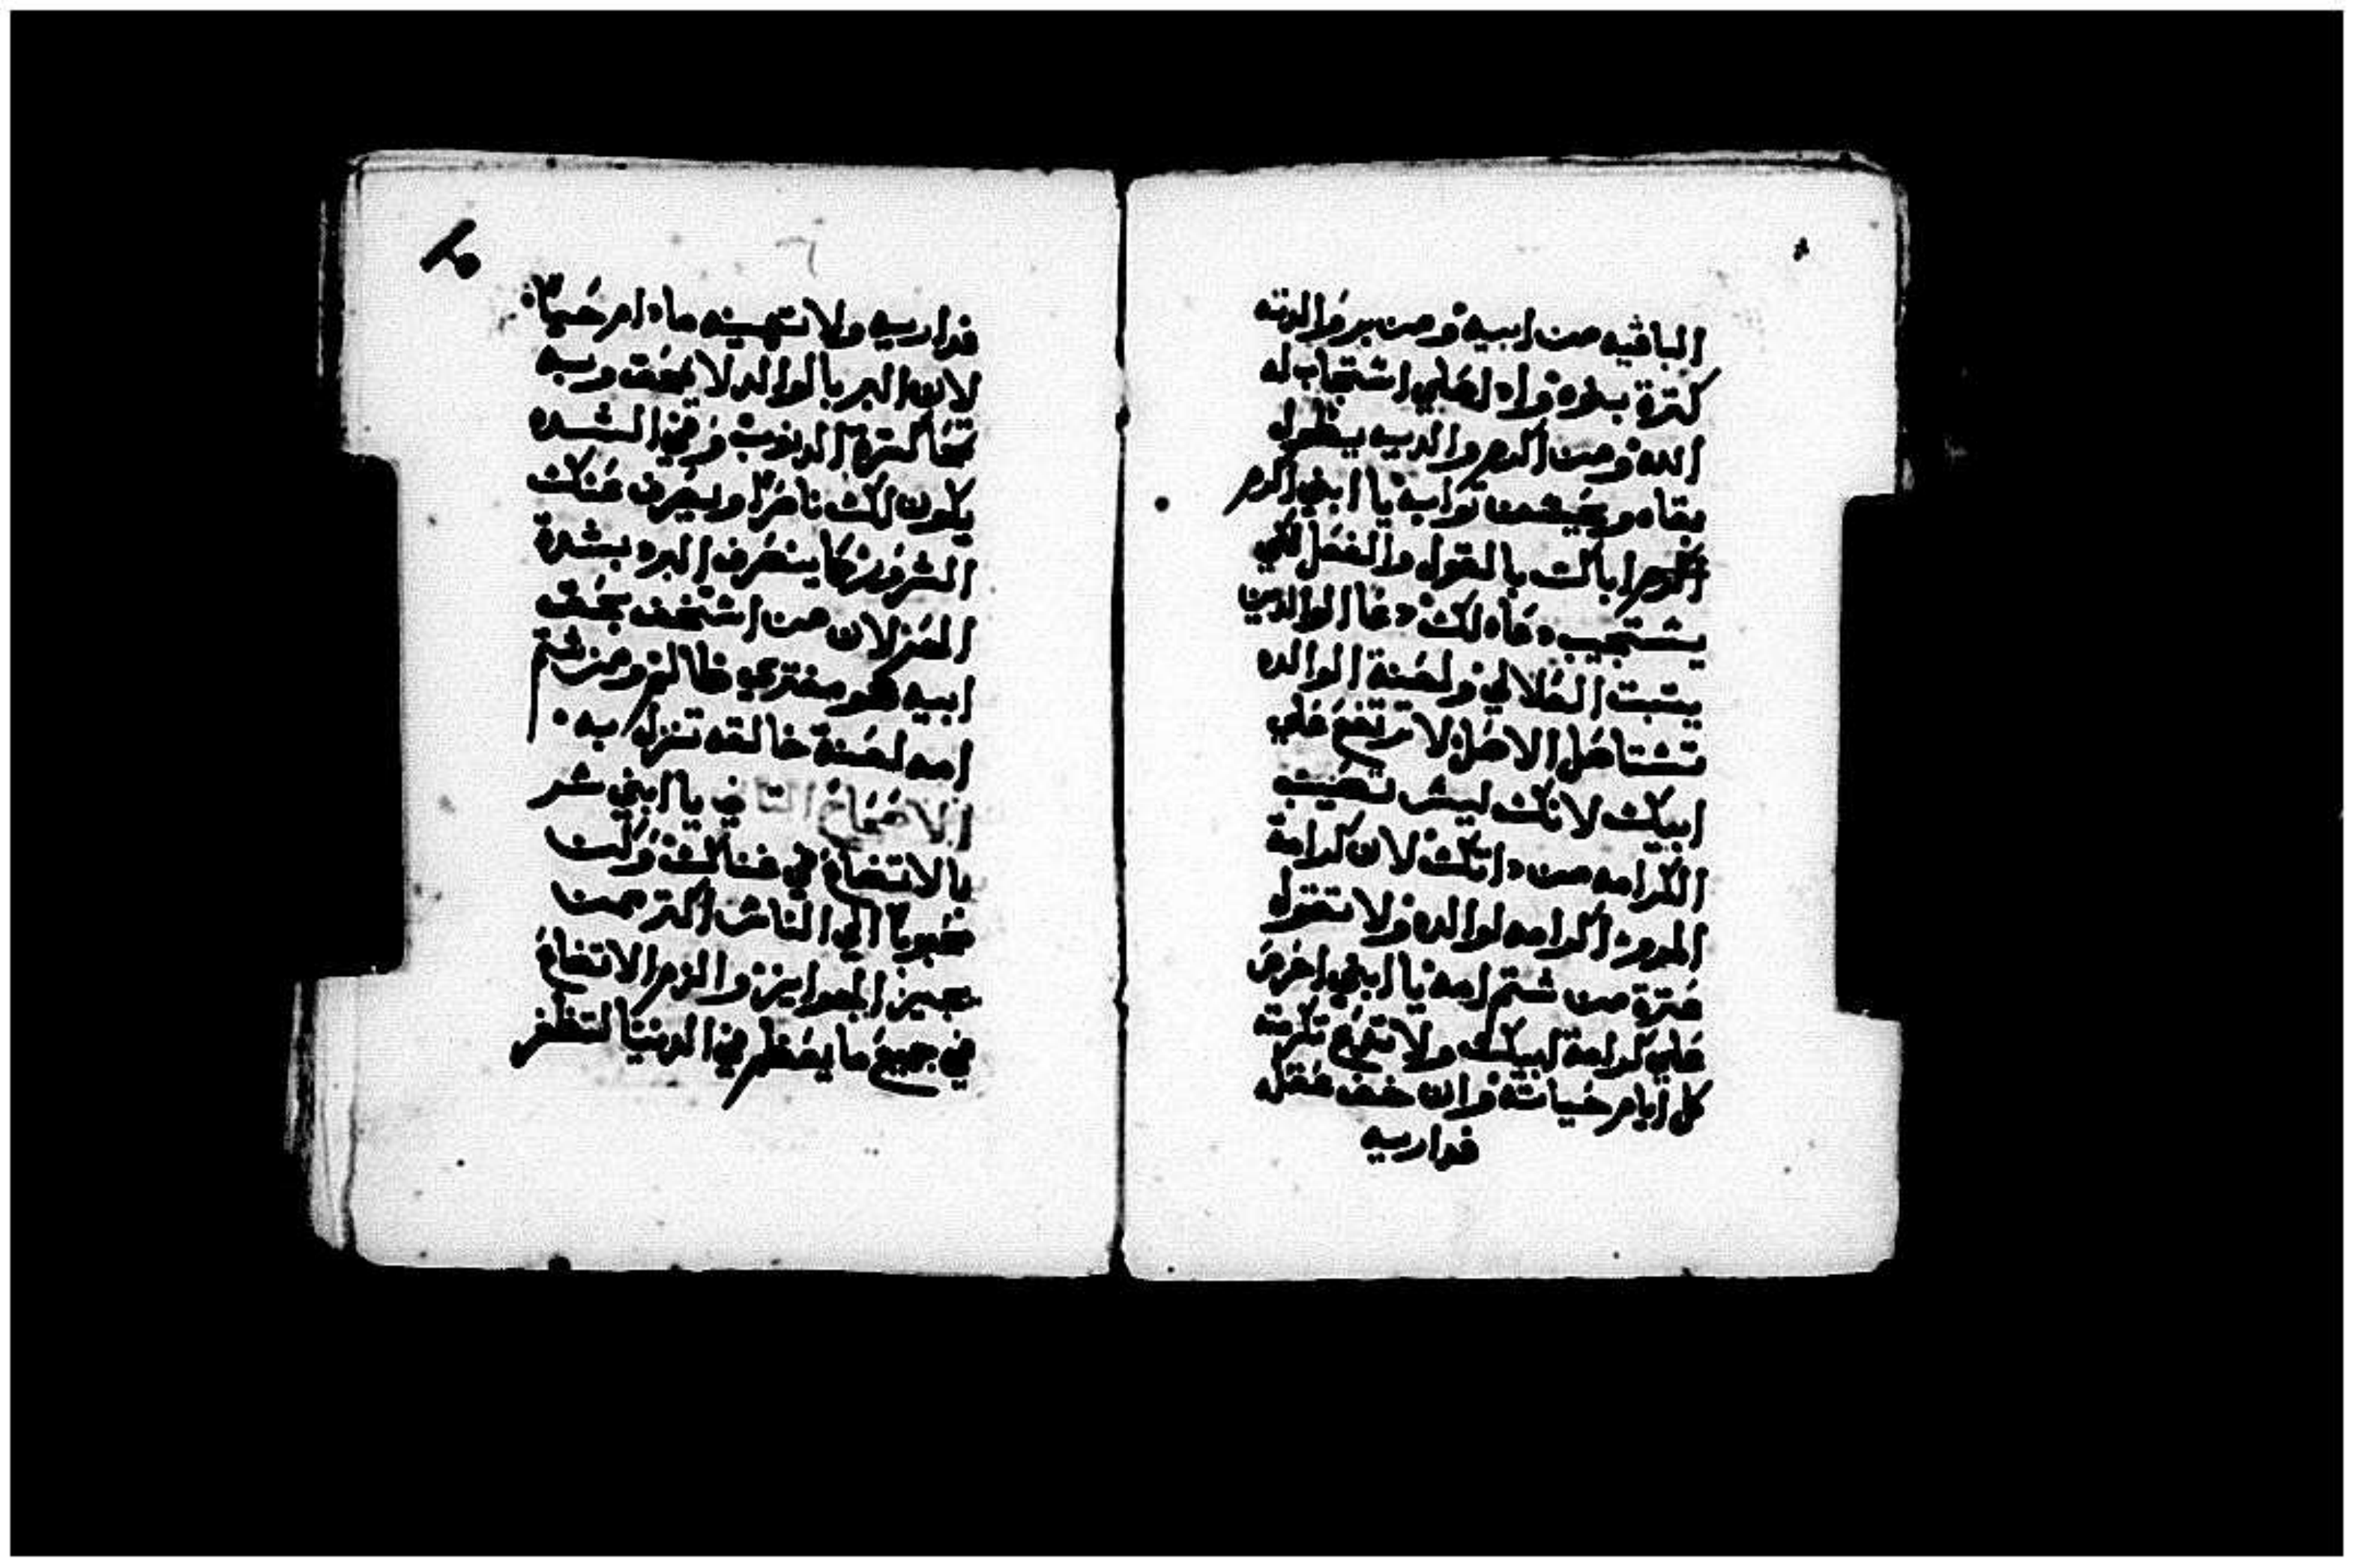 الباقيه من ابيه ومن بر والدته
كترة بنوه واذا صلي اشتجاب له
الله ومن اكرم والديه يطول
بقاه ويعيش من تواب يا ابني اكرم
اكرم اباك بالقول والفعل لكي
يشتجيب دعاه لك دعا الوالدين
يتبت العلالي ولعنة الوالده
تشتاصل الاصل لا ترتفع علي
ابيك لانك ليش تصيب
الكرامه من داتك لان كرامة
المرو اكرامه لوالده ولا تقول
عترة من شتم امه يا ابني احرص
علي كرامة ابيك ولا تدع تكرمته
كل ايام حياته وان خف عقله
فداريه
فداريه ولا تهينه مادام حيا
لان البر بالوالد لا يمحق وبه
تمحا كترة الدنوب وفي الشده
يكون لك ناصرا ويصرف عنك
الشرور كما ينصرف البرد بشدة
الحر لان من اشتخف بحق
ابيه هو مفتري ظالم ومن شتم
امه لعنة خالقه تنزل به
الاصحاح التاني يا ابني شر
بالاتضاع في غناك وكن
محبوبا الي الناش اكتر من
مجيز الجوايز والزم الاتضاع
في جميع ما يعظم في الدنيا لتظفر